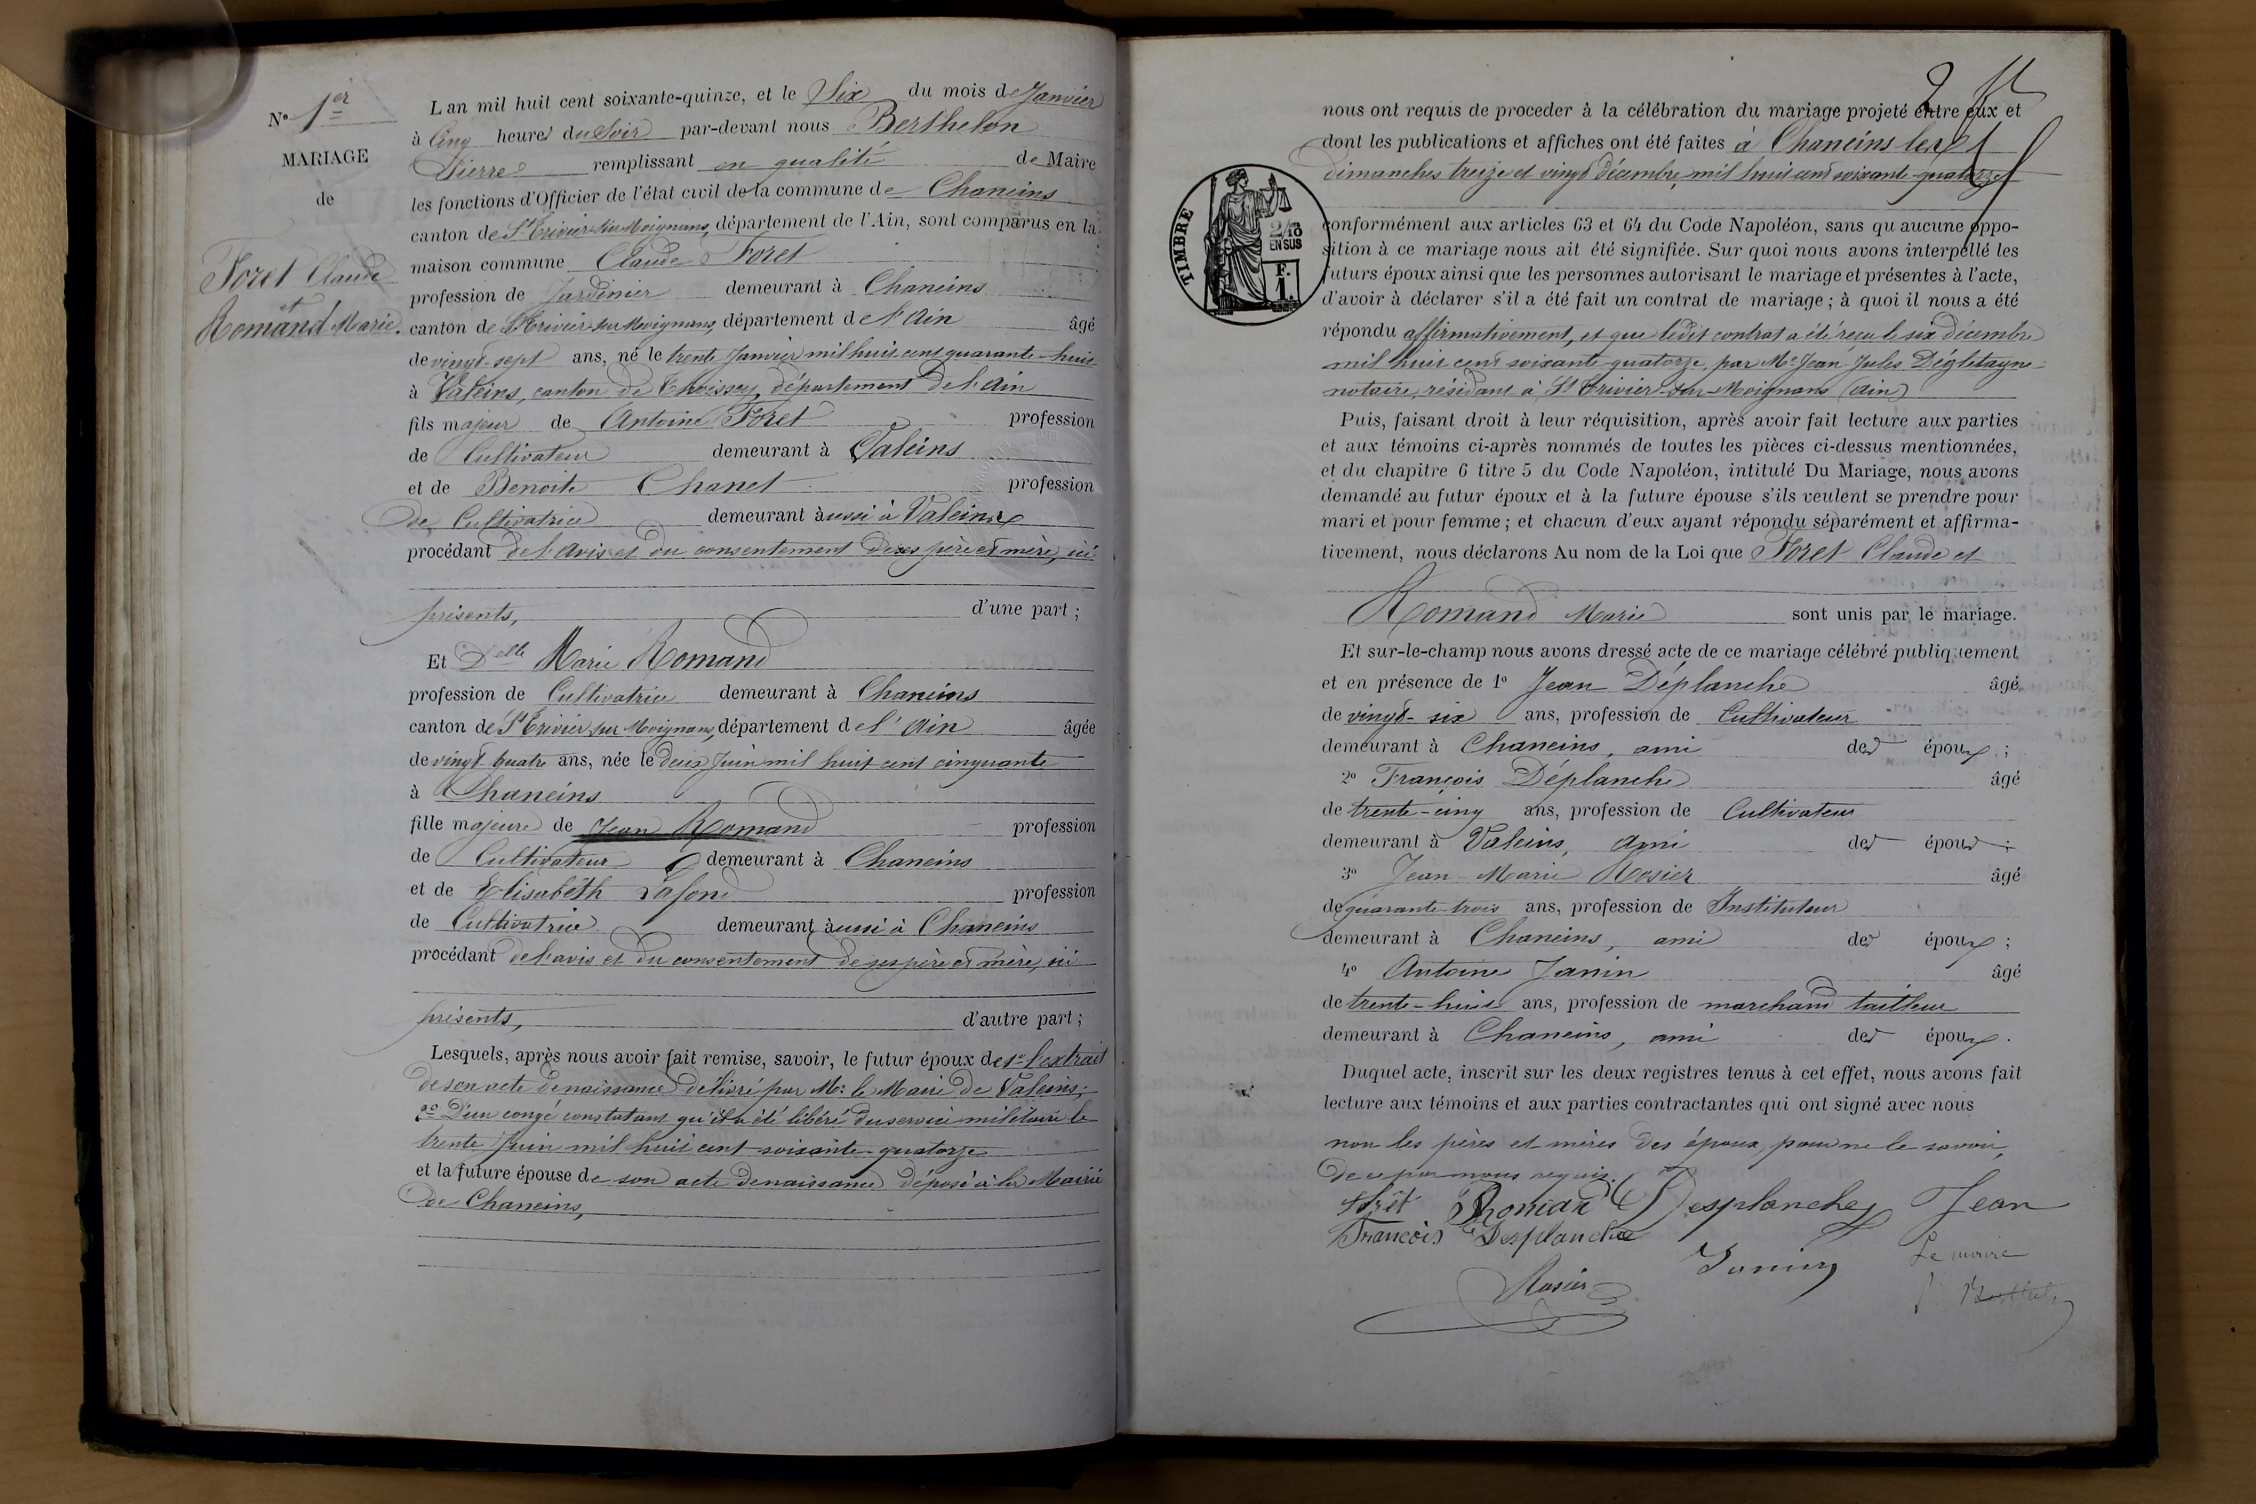 N° 1er
MARIAGE
de
Foret Claude
et
Romand Marie.
L an mil huit cent soixante-quinze, et le Six du mois de Janvier
à Cinq heures du Soir par-devant nous Berthelon
Pierre remplissant en qualité de Maire
les fonctions d'Officier de l'état civil de la commune de Chaneins
canton de St Trivier-sur-Moignans, département de l'Ain, sont comparus en la
maison commune Claude Foret
profession de Jardinier demeurant à Chaneins
canton de St Trivier-sur-Moignans, département de l'Ain âgé
de vingt-sept ans, né le trente Janvier mil huit cent quarante-huit
à Valeins, canton de Thoissey, département de l'Ain
fils majeur de Antoine Foret profession
de Cultivateur demeurant à Valeins
et de Benoite Chanet profession
de Cultivatrice demeurant aussi à Valeins
procédant de l'avis et du consentement de ses père et mère, ici
présents, d'une part ;
Et Delle Marie Romand
profession de Cultivatrice demeurant à Chaneins
canton de St Trivier sur Moignans, département de l'Ain âgée
de vingt-quatre ans, née le deux Juin mil huit cent cinquante
à Chaneins
fille majeure de Jean Romand profession
de Cultivateur demeurant à Chaneins
et de Elisabeth Lafond profession
de Cultivatrice demeurant aussi à Chaneins
procédant de l'avis et du consentement de ses père et mère, ici
présents, d'autre part ;
Lesquels, après nous avoir fait remise, savoir, le futur époux de 1° l'extrait
de son acte de naissance délivré par Mr le Maire de Valeins ;
2° D'un congé constatant qu'il a été libéré du service militaire le
trente Juin mil huit cent soixante-quatorze
et la future épouse de son acte de naissance déposé à la Mairie
de Chaneins,
2
nous ont requis de proceder à la célébration du mariage projeté entre eux et
dont les publications et affiches ont été faites à Chaneins les
dimanches treize et vingt décembre mil huit cent soixante-quatorze
TIMBRE
2/10
EN SUS
F.
1.
conformément aux articles 63 et 64 du Code Napoléon, sans qu aucune oppo-
sition à ce mariage nous ait été signifiée. Sur quoi nous avons interpellé les
futurs époux ainsi que les personnes autorisant le mariage et présentes à l'acte,
d'avoir à déclarer s'il a été fait un contrat de mariage ; à quoi il nous a été
répondu affirmativement, et que ledit contrat a été reçu le six décembre
mil huit cent soixante-quatorze, par Me Jean Jules Dégletagne
notaire, résidant à St Trivier-sur-Moignans (Ain)
Puis, faisant droit à leur réquisition, après avoir fait lecture aux parties
et aux témoins ci-après nommés de toutes les pièces ci-dessus mentionnées,
et du chapitre 6 titre 5 du Code Napoléon, intitulé Du Mariage, nous avons
demandé au futur époux et à la future épouse s'ils veulent se prendre pour
mari et pour femme ; et chacun d'eux ayant répondu séparément et affirma-
tivement, nous déclarons Au nom de la Loi que Foret Claude et
Romand Marie sont unis par le mariage.
Et sur-le-champ nous avons dressé acte de ce mariage célébré publiquement
et en présence de 1° Jean Déplanche âgé
de vingt-six ans, profession de Cultivateur
demeurant à Chaneins, ami des époux ;
2° François Déplanche âgé
de trente-cinq ans, profession de Cultivateur
demeurant à Valeins, ami des époux ;
3° Jean-Marie Rosier âgé
de quarante-trois ans, profession de Instituteur
demeurant à Chaneins, ami des époux ;
4° Antoine Janin âgé
de trente-huit ans, profession de marchand tailleur
demeurant à Chaneins, ami des époux.
Duquel acte, inscrit sur les deux registres tenus à cet effet, nous avons fait
lecture aux témoins et aux parties contractantes qui ont signé avec nous
non les pères et mères des époux, pour ne le savoir,
de ce par nous requis.
forêt Roman Desplanche Jean
François Desplanche Janin Le maire
Rosier